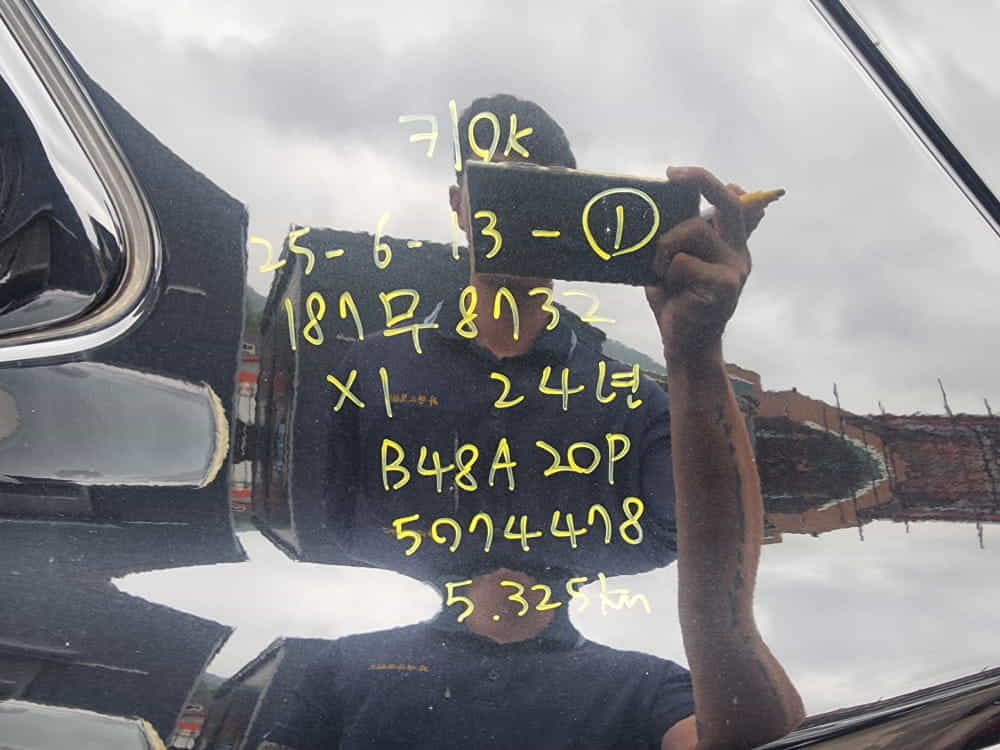 키OK
25-6-13-①
187무8732
X1 24년
B48A20P
5074478
5.325km